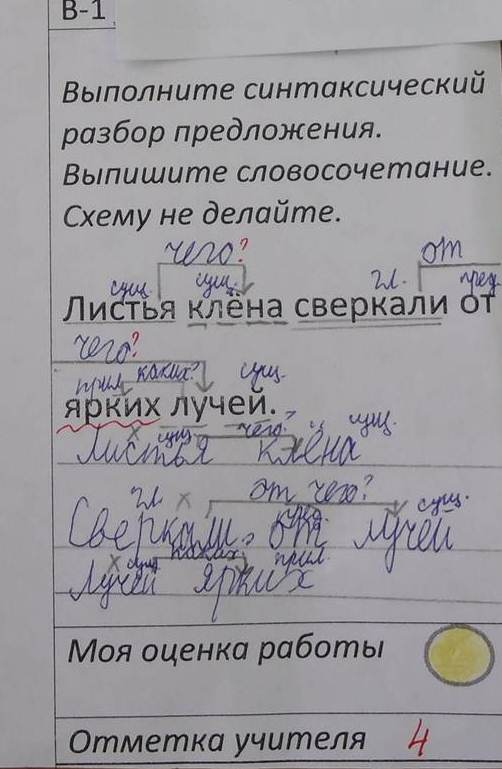 В-1
Выполните синтаксический
разбор предложения.
Выпишите словосочетание.
Схему не делайте.
чего? от
сущ. сущ. гл. пред.
Листья клёна сверкали от
чего?
прил. каких? сущ.
ярких лучей.
сущ. чего? сущ.
Листья клёна
гл. от чего? сущ.
Сверкали от лучей
сущ. каких прил.
Лучей ярких
Моя оценка работы
Отметка учителя 4